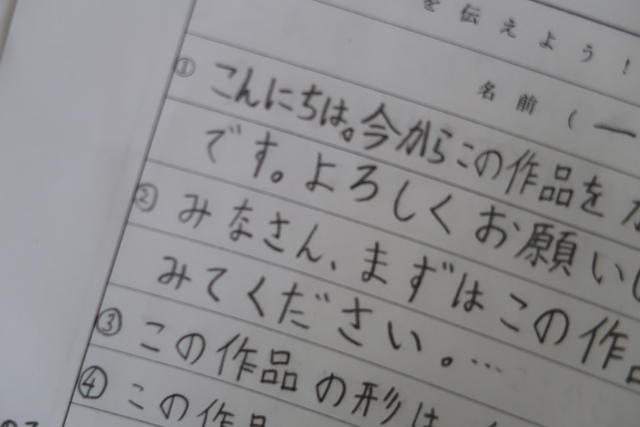 を伝えよう!
名前(
① こんにちは。今からこの作品を
です。よろしくお願いし
② みなさん、まずはこの作品
みてください。…
③ この作品の形は
④ この作品